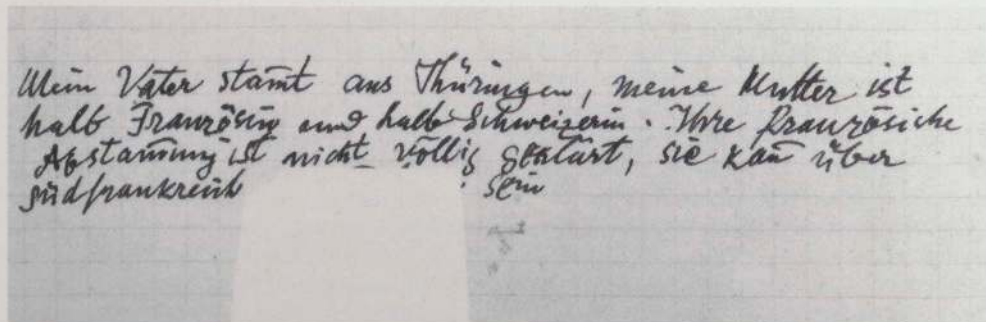 Mein Vater stam̄t aus Thüringen, meine Mutter ist
halb Französin und halb Schweizerin. Ihre französische
Abstam̄ung ist nicht völlig geklärt, sie kan̄ über
Südfrankreich sein